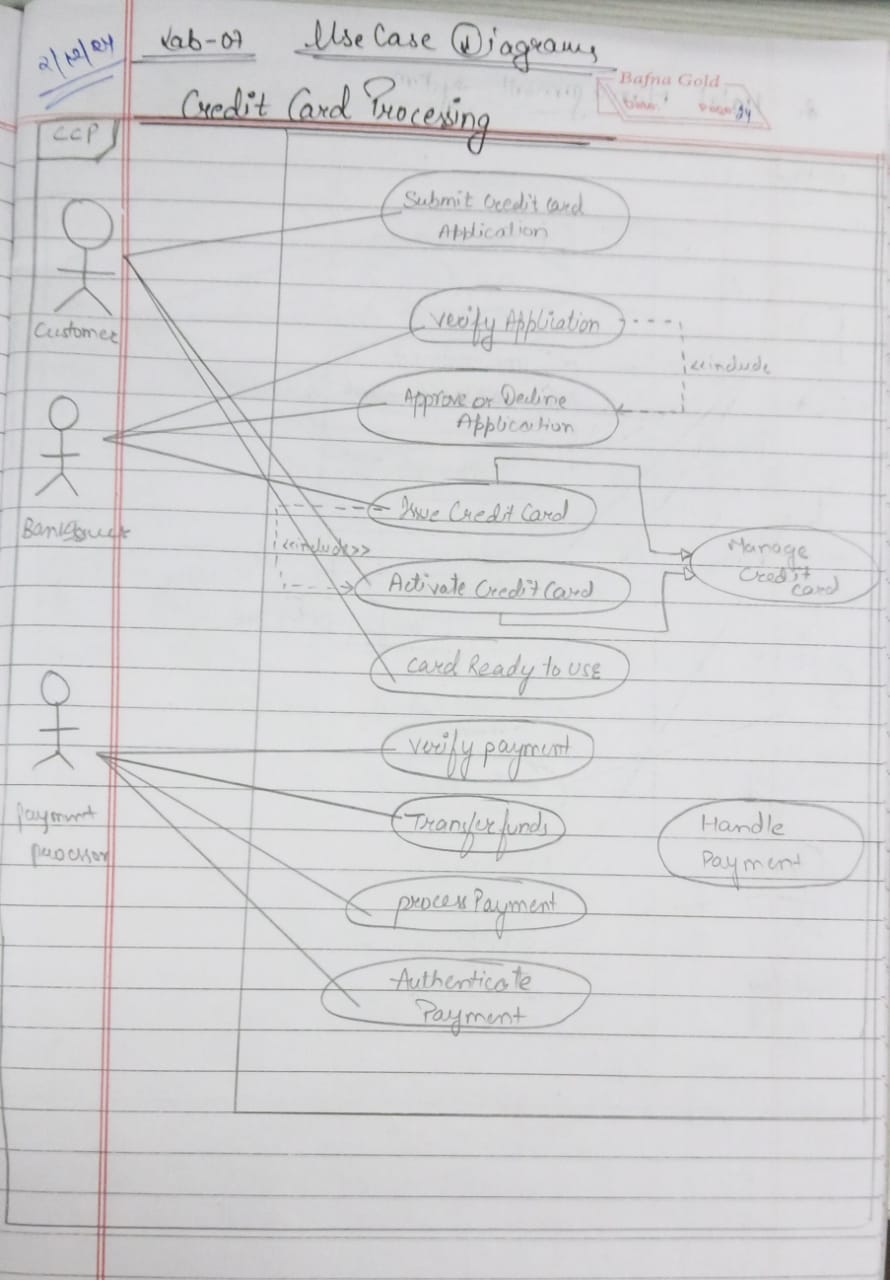 2/12/24
Lab-07 Use Case Diagrams
Bafna Gold
Credit Card Processing
CCP
Submit Credit Card
Application
Customer
Verify Application
<<include
Approve or Decline
Application
Issue Credit Card
<<include>>
Manage
Credit
Card
Activate Credit Card
Card Ready to use
Verify payment
Payment
processor
Transfer funds
Handle
Payment
process Payment
Authenticate
Payment